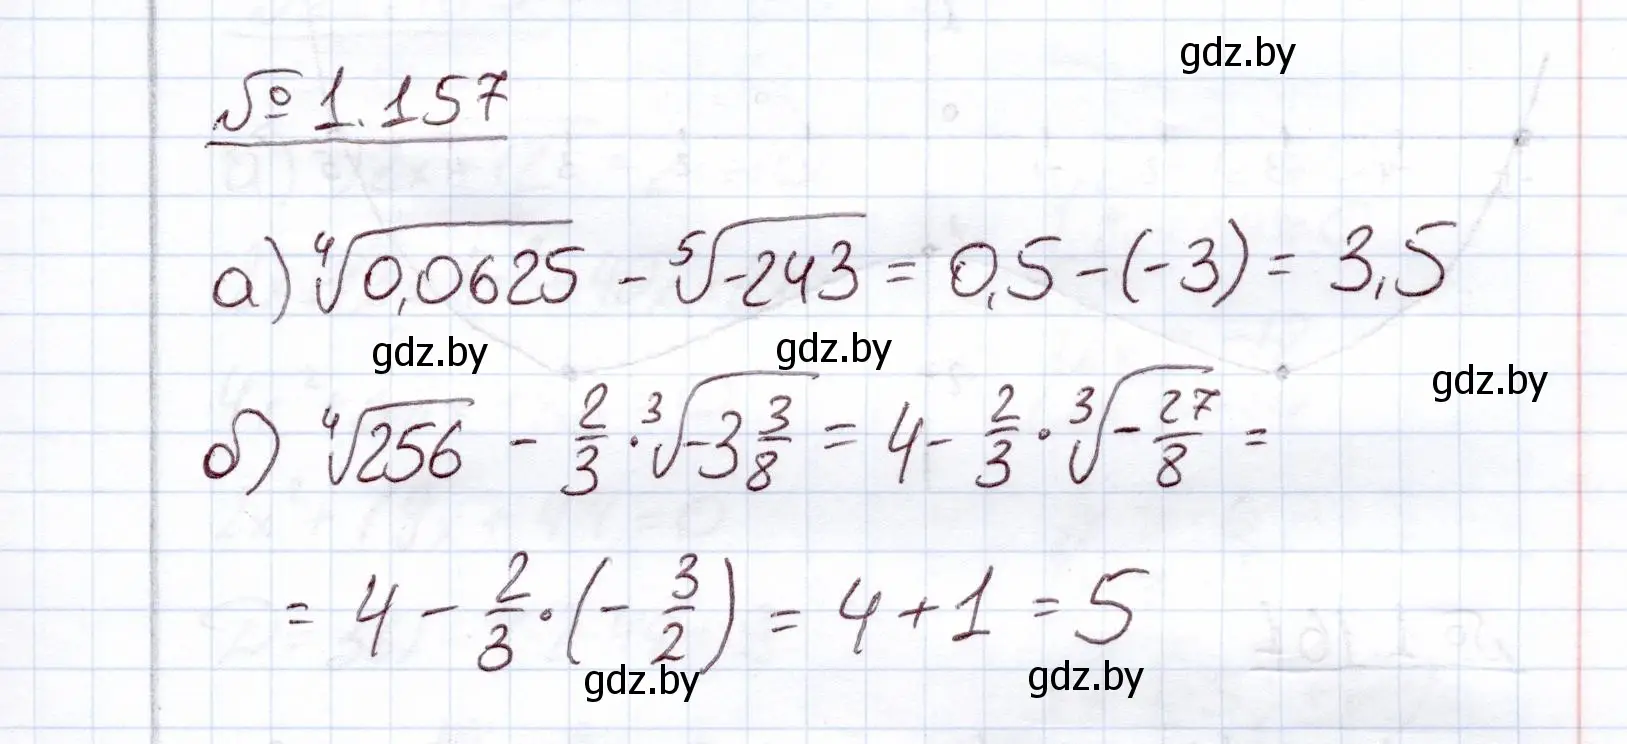 gdz.by
№ 1.157
а) ⁴√0,0625 - ⁵√-243 = 0,5 - (-3) = 3,5
gdz.by gdz.by gdz.by
б) ⁴√256 - 2/3 · ³√-3 3/8 = 4 - 2/3 · ³√-27/8 =
= 4 - 2/3 · (- 3/2) = 4 + 1 = 5
gdz.by gdz.by